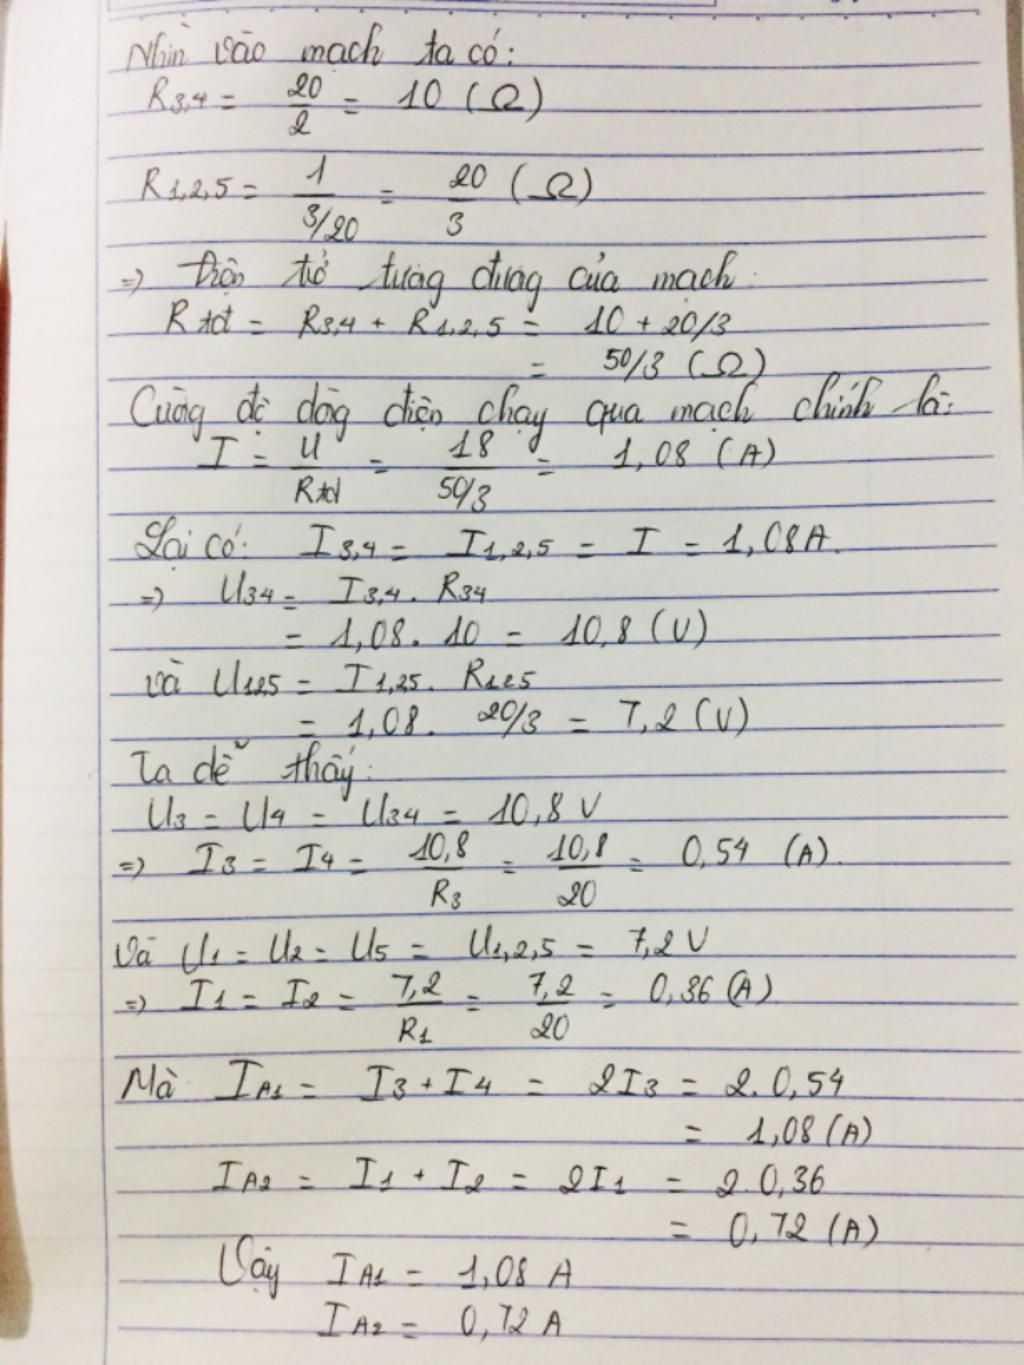 Nhìn vào mạch ta có:
R3,4 = 20/2 = 10 (Ω)
R1,2,5 = 1/(3/20) = 20/3 (Ω)
=> Điện trở tương đương của mạch:
Rtđ = R3,4 + R1,2,5 = 10 + 20/3
= 50/3 (Ω)
Cường độ dòng điện chạy qua mạch chính là:
I = U/Rtđ = 18/(50/3) = 1,08 (A)
Lại có: I3,4 = I1,2,5 = I = 1,08A.
=> U34 = I3,4. R34
= 1,08. 10 = 10,8 (V)
và U125 = I1,25. R125
= 1,08. 20/3 = 7,2 (V)
Ta dễ thấy:
U3 = U4 = U34 = 10,8 V
=> I3 = I4 = 10,8/R3 = 10,8/20 = 0,54 (A).
Và U1 = U2 = U5 = U1,2,5 = 7,2 V
=> I1 = I2 = 7,2/R1 = 7,2/20 = 0,36 (A)
Mà IA1 = I3 + I4 = 2I3 = 2. 0,54
= 1,08 (A)
IA2 = I1 + I2 = 2I1 = 2. 0,36
= 0,72 (A)
Vậy IA1 = 1,08 A
IA2 = 0,72 A